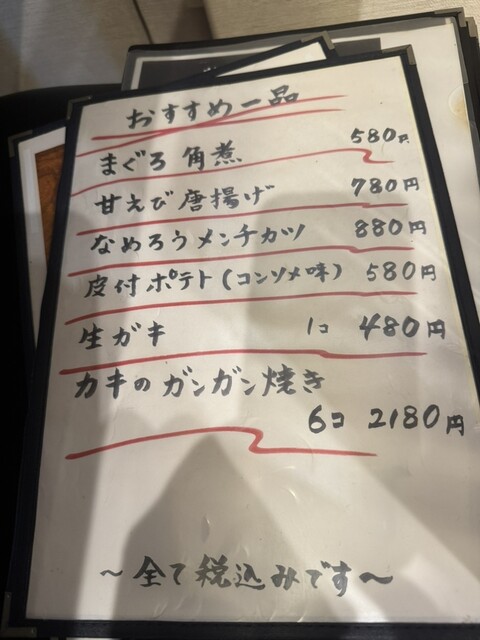 おすすめ一品
まぐろ角煮 580円
甘えび唐揚げ 780円
なめろうメンチカツ 880円
皮付ポテト(コンソメ味) 580円
生ガキ 1コ 480円
カキのガンガン焼き
6コ 2180円
～全て税込みです～